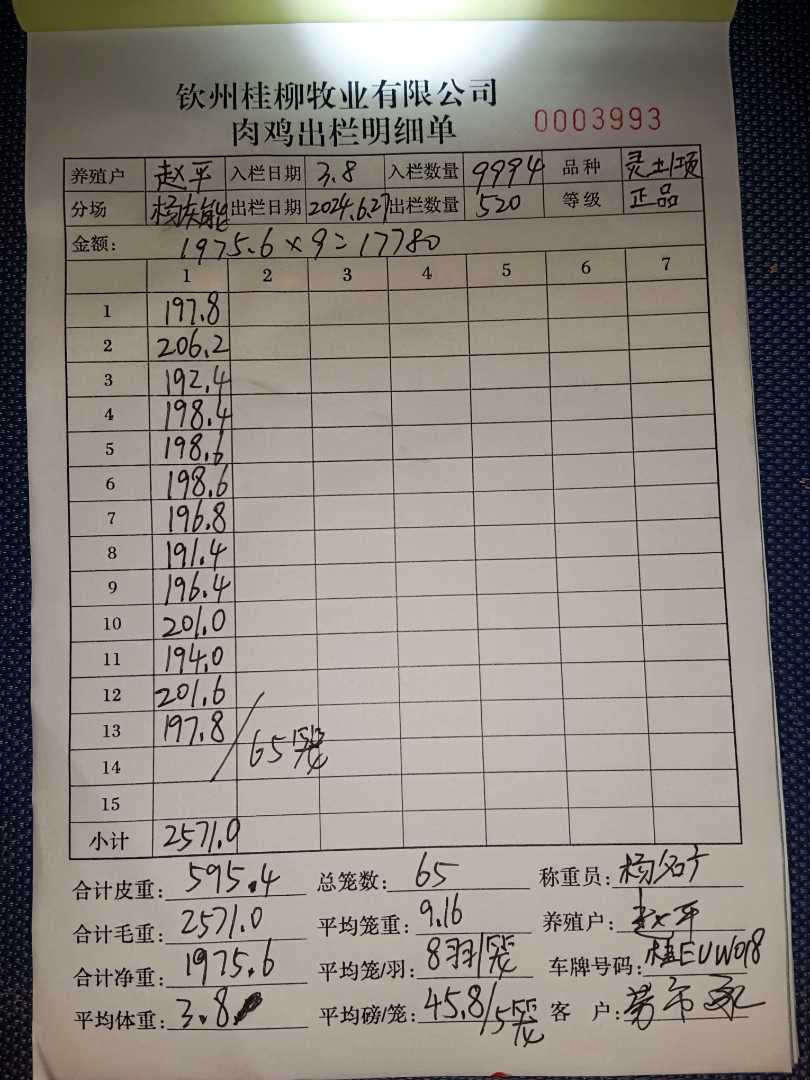 钦州桂柳牧业有限公司
肉鸡出栏明细单 0003993
养殖户 赵平 入栏日期 3.8 入栏数量 9994 品种 灵土1项
分场 出栏日期 2024.6.27 出栏数量 520 等级 正品
金额: 1975.6×9=17780
1 2 3 4 5 6 7
1 197.8
2 206.2
3 192.4
4 198.4
5 198.6
6 198.6
7 196.8
8 191.4
9 196.4
10 201.0
11 194.0
12 201.6
13 197.8
65笼
14
15
小计 2571.0
合计皮重: 595.4 总笼数: 65 称重员:
合计毛重: 2571.0 平均笼重: 9.16 养殖户: 赵平
合计净重: 1975.6 平均笼/羽: 8羽/笼 车牌号码: 桂EUW018
平均体重: 3.8 平均磅/笼: 45.8/5笼 客 户: